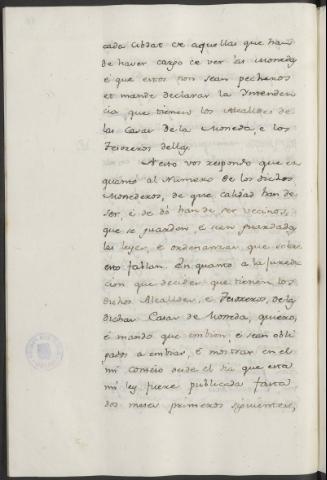 cada Cibdat de aquellas que han
de haver cargo de ver las Monedas
é que estos non sean pecheros
et mande declarar la Intenden
cia que tienen los Alcalldes de
las Casas de la Moneda, e los
Tesoreros dellas.
A esto vos respondo que en
quanto al Número de los dichos
Monederos, de que calidad han de
ser, é de dó han de ser vecinos,
que se guarden é sean guardadas
las leyes, é ordenanzas que sobre
esto fablan. En quanto a la juredic
cion que decides que tienen los
dichos Alcalldes, e Tesoreros, de las
dichas Casas de Moneda, quiero,
é mando que embien, é sean obli
gados a embiar, é mostrar en el
mi Consejo desde el dia que esta
mi ley fuere publicada fasta
dos meses primeros siguientes,